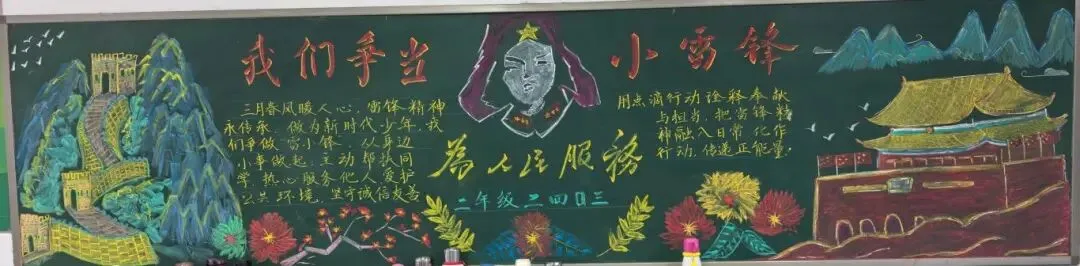 我们争当 小雷锋
三月春风暖人心，雷锋精神
永传承。做为新时代少年，我
们争做“雷小锋”，从身边
小事做起：主动帮扶同
学，热心服务他人，爱护
公共环境，坚守诚信友善
為人民服務
二年级二四〇三
用点滴行动诠释奉献
与担当，把雷锋精
神融入日常，化作
行动，传递正能量。